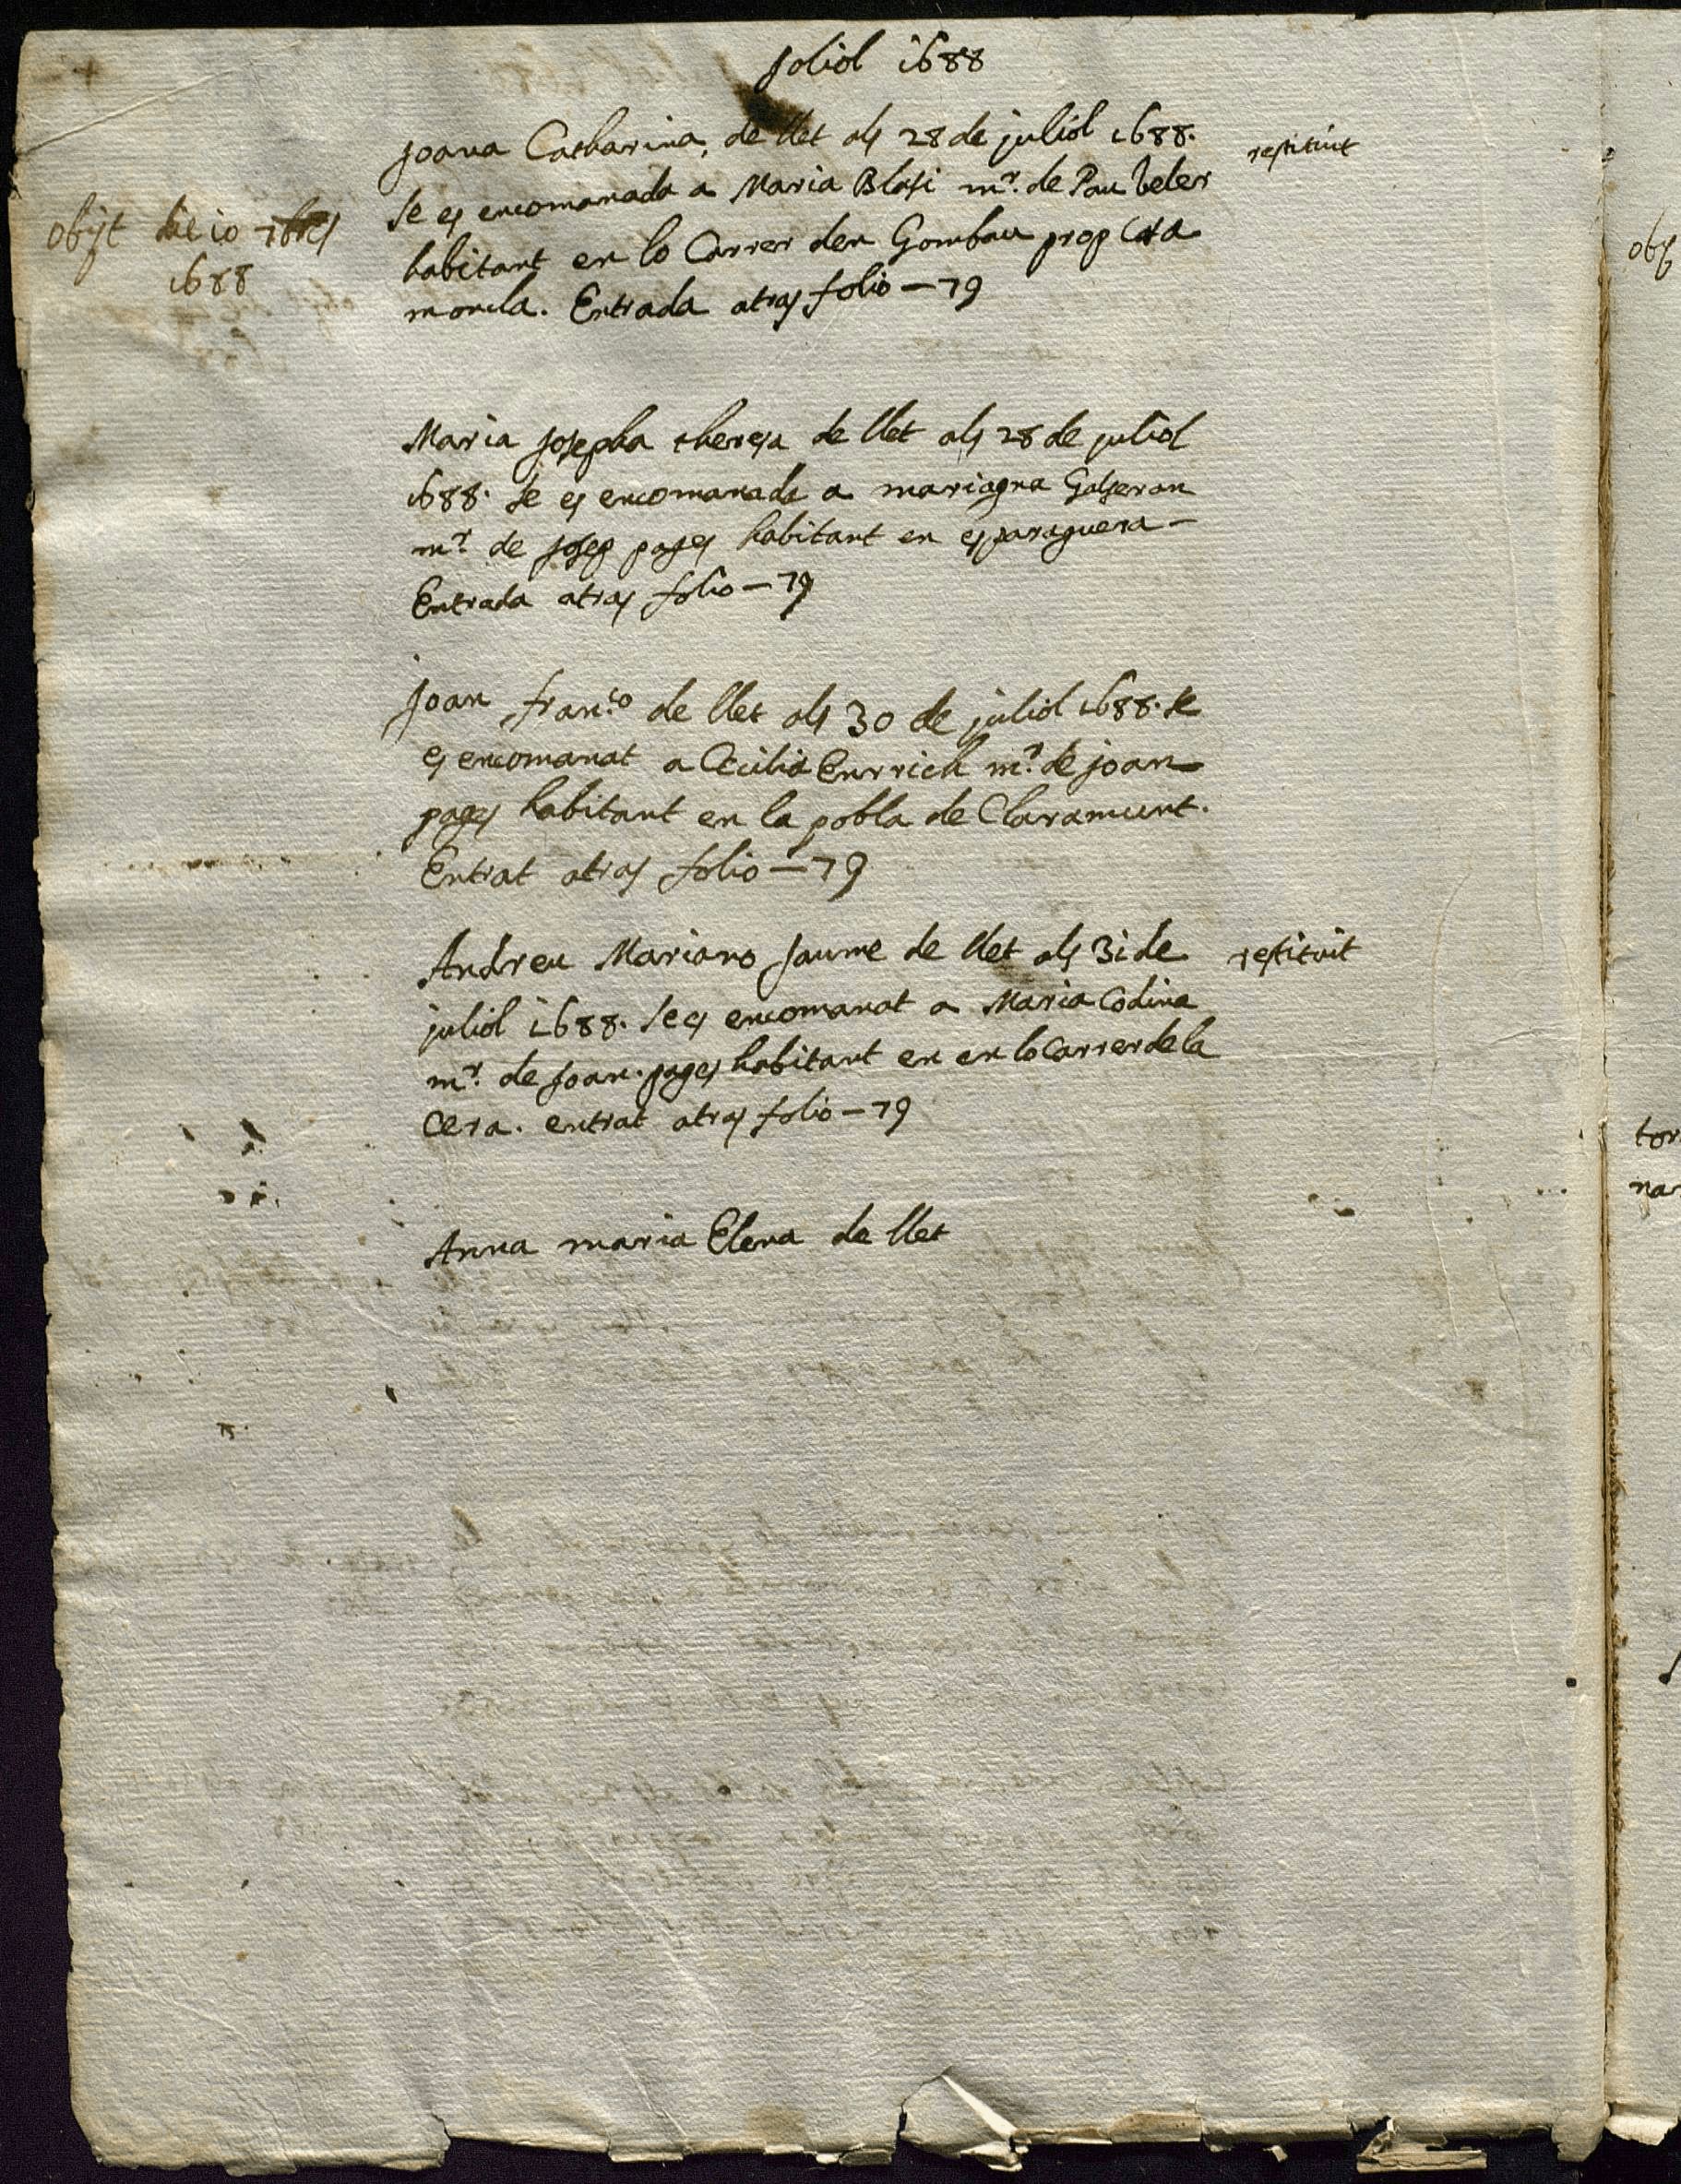 Joliol 1688
Joana Catharina, de llet als 28 de juliol 1688. restituit
Se es encomanada a Maria Blasi mr. de Pau veler
habitant en lo Carrer den Gombau prop
moncla. Entrada atras folio — 79
Obijt die 10 7bres
1688
Maria Josepha theresa de llet als 28 de juliol
1688. Se es encomanada a mariagna Galseran
mr. de Josep pages habitant en esparaguera —
Entrada atras folio — 79
Joan Franco. de llet als 30 de juliol 1688. se
es encomanat a Cecilia Enrrich mr. de joan
pages habitant en la pobla de Claramunt.
Entrat atras folio — 79
Andreu Mariano Jaume de llet als 31 de restituit
juliol 1688. Se es encomanat a Maria Codina
mr. de Joan. pages habitant en en lo Carrer de la
Cera. entrat atras folio — 79
Anna maria Elena de llet